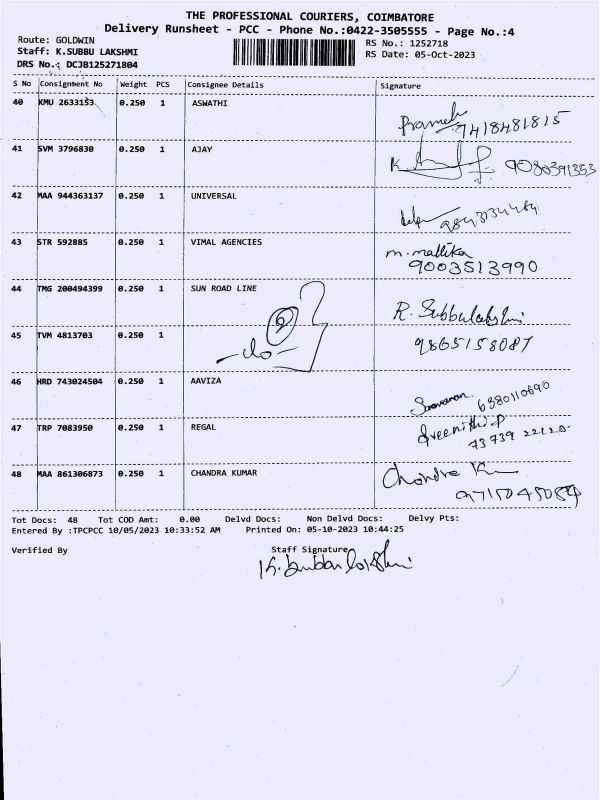 THE PROFESSIONAL COURIERS, COIMBATORE
Delivery Runsheet - PCC - Phone No.:0422-3505555 - Page No.:4
Route: GOLDWIN
RS No.: 1252718
Staff: K.SUBBU LAKSHMI
RS Date: 05-Oct-2023
DRS No.: DCJB125271804
S No Consignment No Weight PCS Consignee Details Signature
40 KMU 2633153 0.250 1 ASWATHI
7418481815
41 SVM 3796830 0.250 1 AJAY
K 9080391353
42 MAA 944363137 0.250 1 UNIVERSAL
43 STR 592885 0.250 1 VIMAL AGENCIES m.mallika
9003513990
44 TMG 200494399 0.250 1 SUN ROAD LINE
R. Subbulakshmi
45 TVM 4813703 0.250 1 -do- 9865158087
46 HRD 743024504 0.250 1 AAVIZA
Saravanan 6380110690
47 TRP 7083950 0.250 1 REGAL Sreenithi.P
73739 22120
48 MAA 861306873 0.250 1 CHANDRA KUMAR Chandra
Tot Docs: 48 Tot COD Amt: 0.00 Delvd Docs: Non Delvd Docs: Delvy Pts:
Entered By :TPCPCC 10/05/2023 10:33:52 AM Printed On: 05-10-2023 10:44:25
Verified By Staff Signature
K. Subbu lakshmi